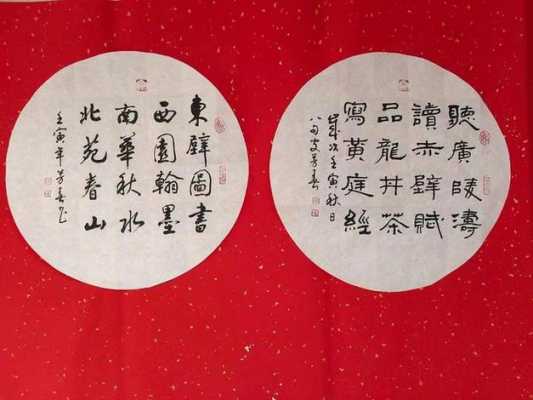 聽廣陵濤
讀赤壁賦
品龍井茶
寫黃庭經
歲次壬寅秋日
八旬叟芳春
東壁圖書
西園翰墨
南華秋水
北苑春山
壬寅年芳春